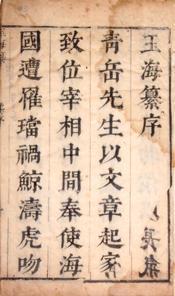 玉海纂序
青岳先生以文章起家
致位宰相中間奉使海
國遭罹璫禍鯨濤虎吻